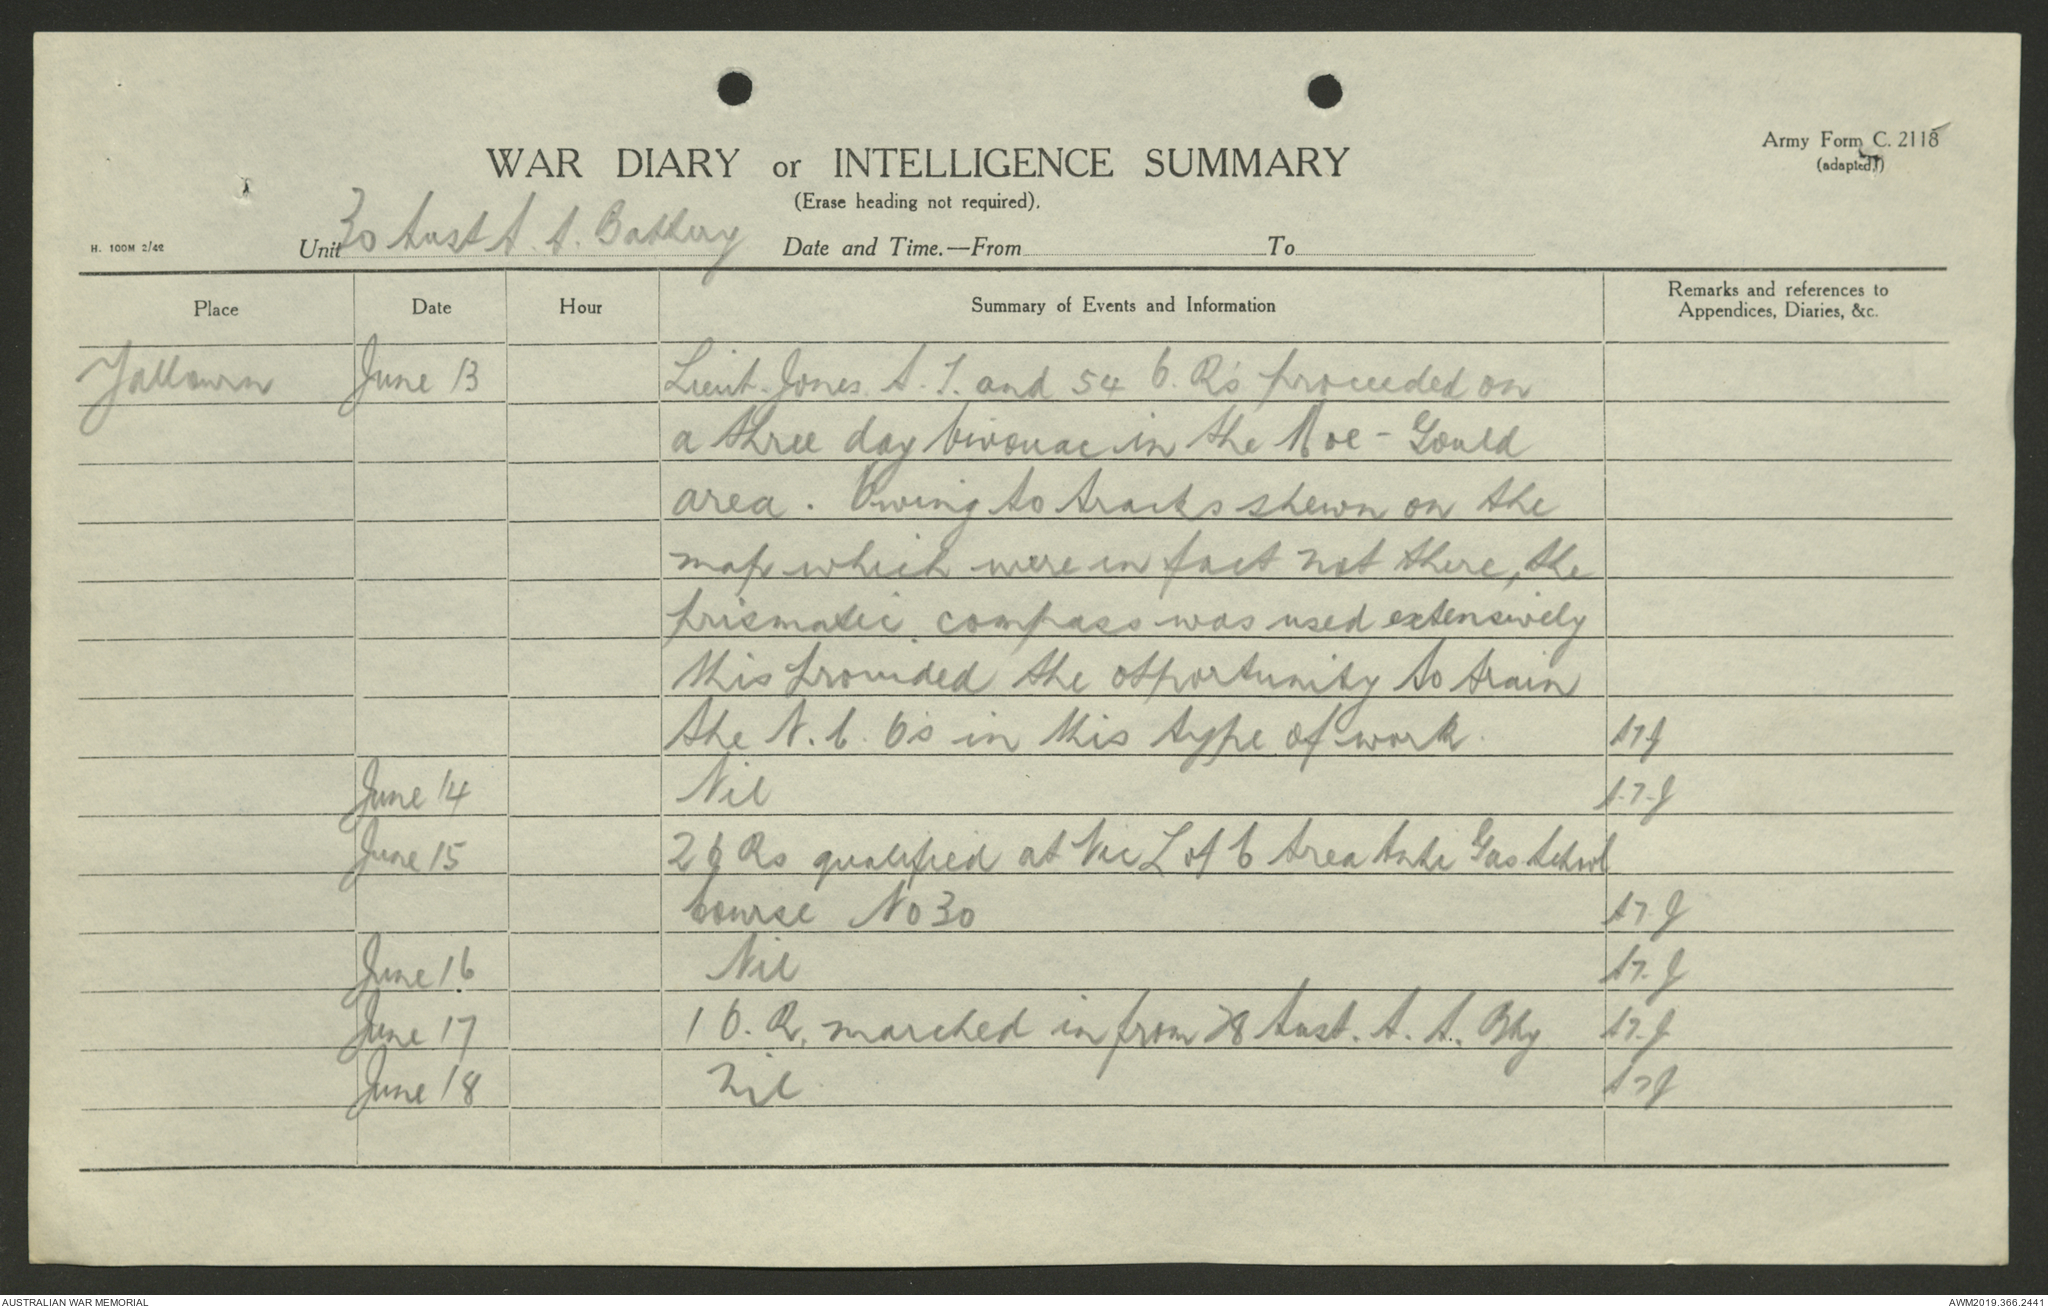 Army Form C. 2118
(adapted.)
WAR DIARY or INTELLIGENCE SUMMARY
(Erase heading not required).
H. 100M 2/42
Unit 30 Aust A. A. Battery Date and Time.—From To
Place Date Hour Summary of Events and Information Remarks and references to
Appendices, Diaries, &c.
Yallourn June 13 Lieut. Jones. A. T. and 54 O. R's proceeded on
a three day bivouac in the Moe - Gould
area. Owing to tracks shewn on the
map which were in fact not there, the
prismatic compass was used extensively
this provided the opportunity to train
the N. C. O's in this type of work. ATJ
June 14 Nil A.T.J
June 15 2 O Rs qualified at Vic L of C Area Anti Gas School
Course No 30 AT.J
June 16 Nil AT.J
June 17 1 O. R. marched in from 28 Aust. A. A. Bty AT.J
June 18 Nil ATJ
AUSTRALIAN WAR MEMORIAL AWM2019.366.2441